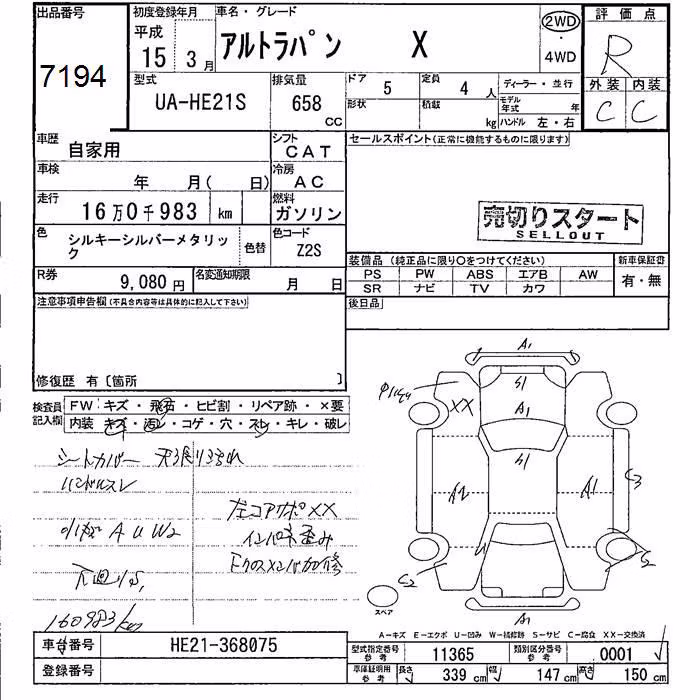 出品番号
7194
初度登録年月
平成
15 3月
車名・グレード
アルトラパン X
2WD
・
4WD
評価点
R
外装 内装
C C
型式
UA-HE21S
排気量
658
CC
ドア 5
定員 4 人
形状
積載 kg
ディーラー・並行
モデル年式 年
ハンドル 左・右
車歴
自家用
シフト
CAT
車検
年 月( 日)
冷房
AC
走行
16万0千983 km
燃料
ガソリン
色
シルキーシルバーメタリック
色替
色コード
Z2S
R券
9,080円
名変通知期限
月 日
セールスポイント(正常に機能するものに限ります)
売切りスタート
SELLOUT
装備品 (純正品に限り○をつけてください)
PS PW ABS エアB AW
SR ナビ TV カワ
新車保証書
有・無
後日品
注意事項申告欄(不具合内容等は具体的に記入して下さい)
修復歴 有〔箇所 〕
検査員記入欄
FW キズ・飛石・ヒビ割・リペア跡・×要
内装 キズ・汚レ・コゲ・穴・スレ・キレ・破レ
シートカバー 天張り汚れ
ハンドルスレ
小キズ A U W2
左コアサポXX
インパネ歪み
Fクロスメンバ加修
下廻りS,
160983km
A1
S1
XX
A1
S1
A2
A1
C3
C2
S2
A1
スペア
A-キズ E-エクボ U-凹み W-補修跡 S-サビ C-腐食 XX-交換済
車台番号
HE21-368075
登録番号
型式指定番号
参考
11365
類別区分番号
参考
0001
車庫証明用
参考
長さ 339 cm
幅 147 cm
高さ 150 cm